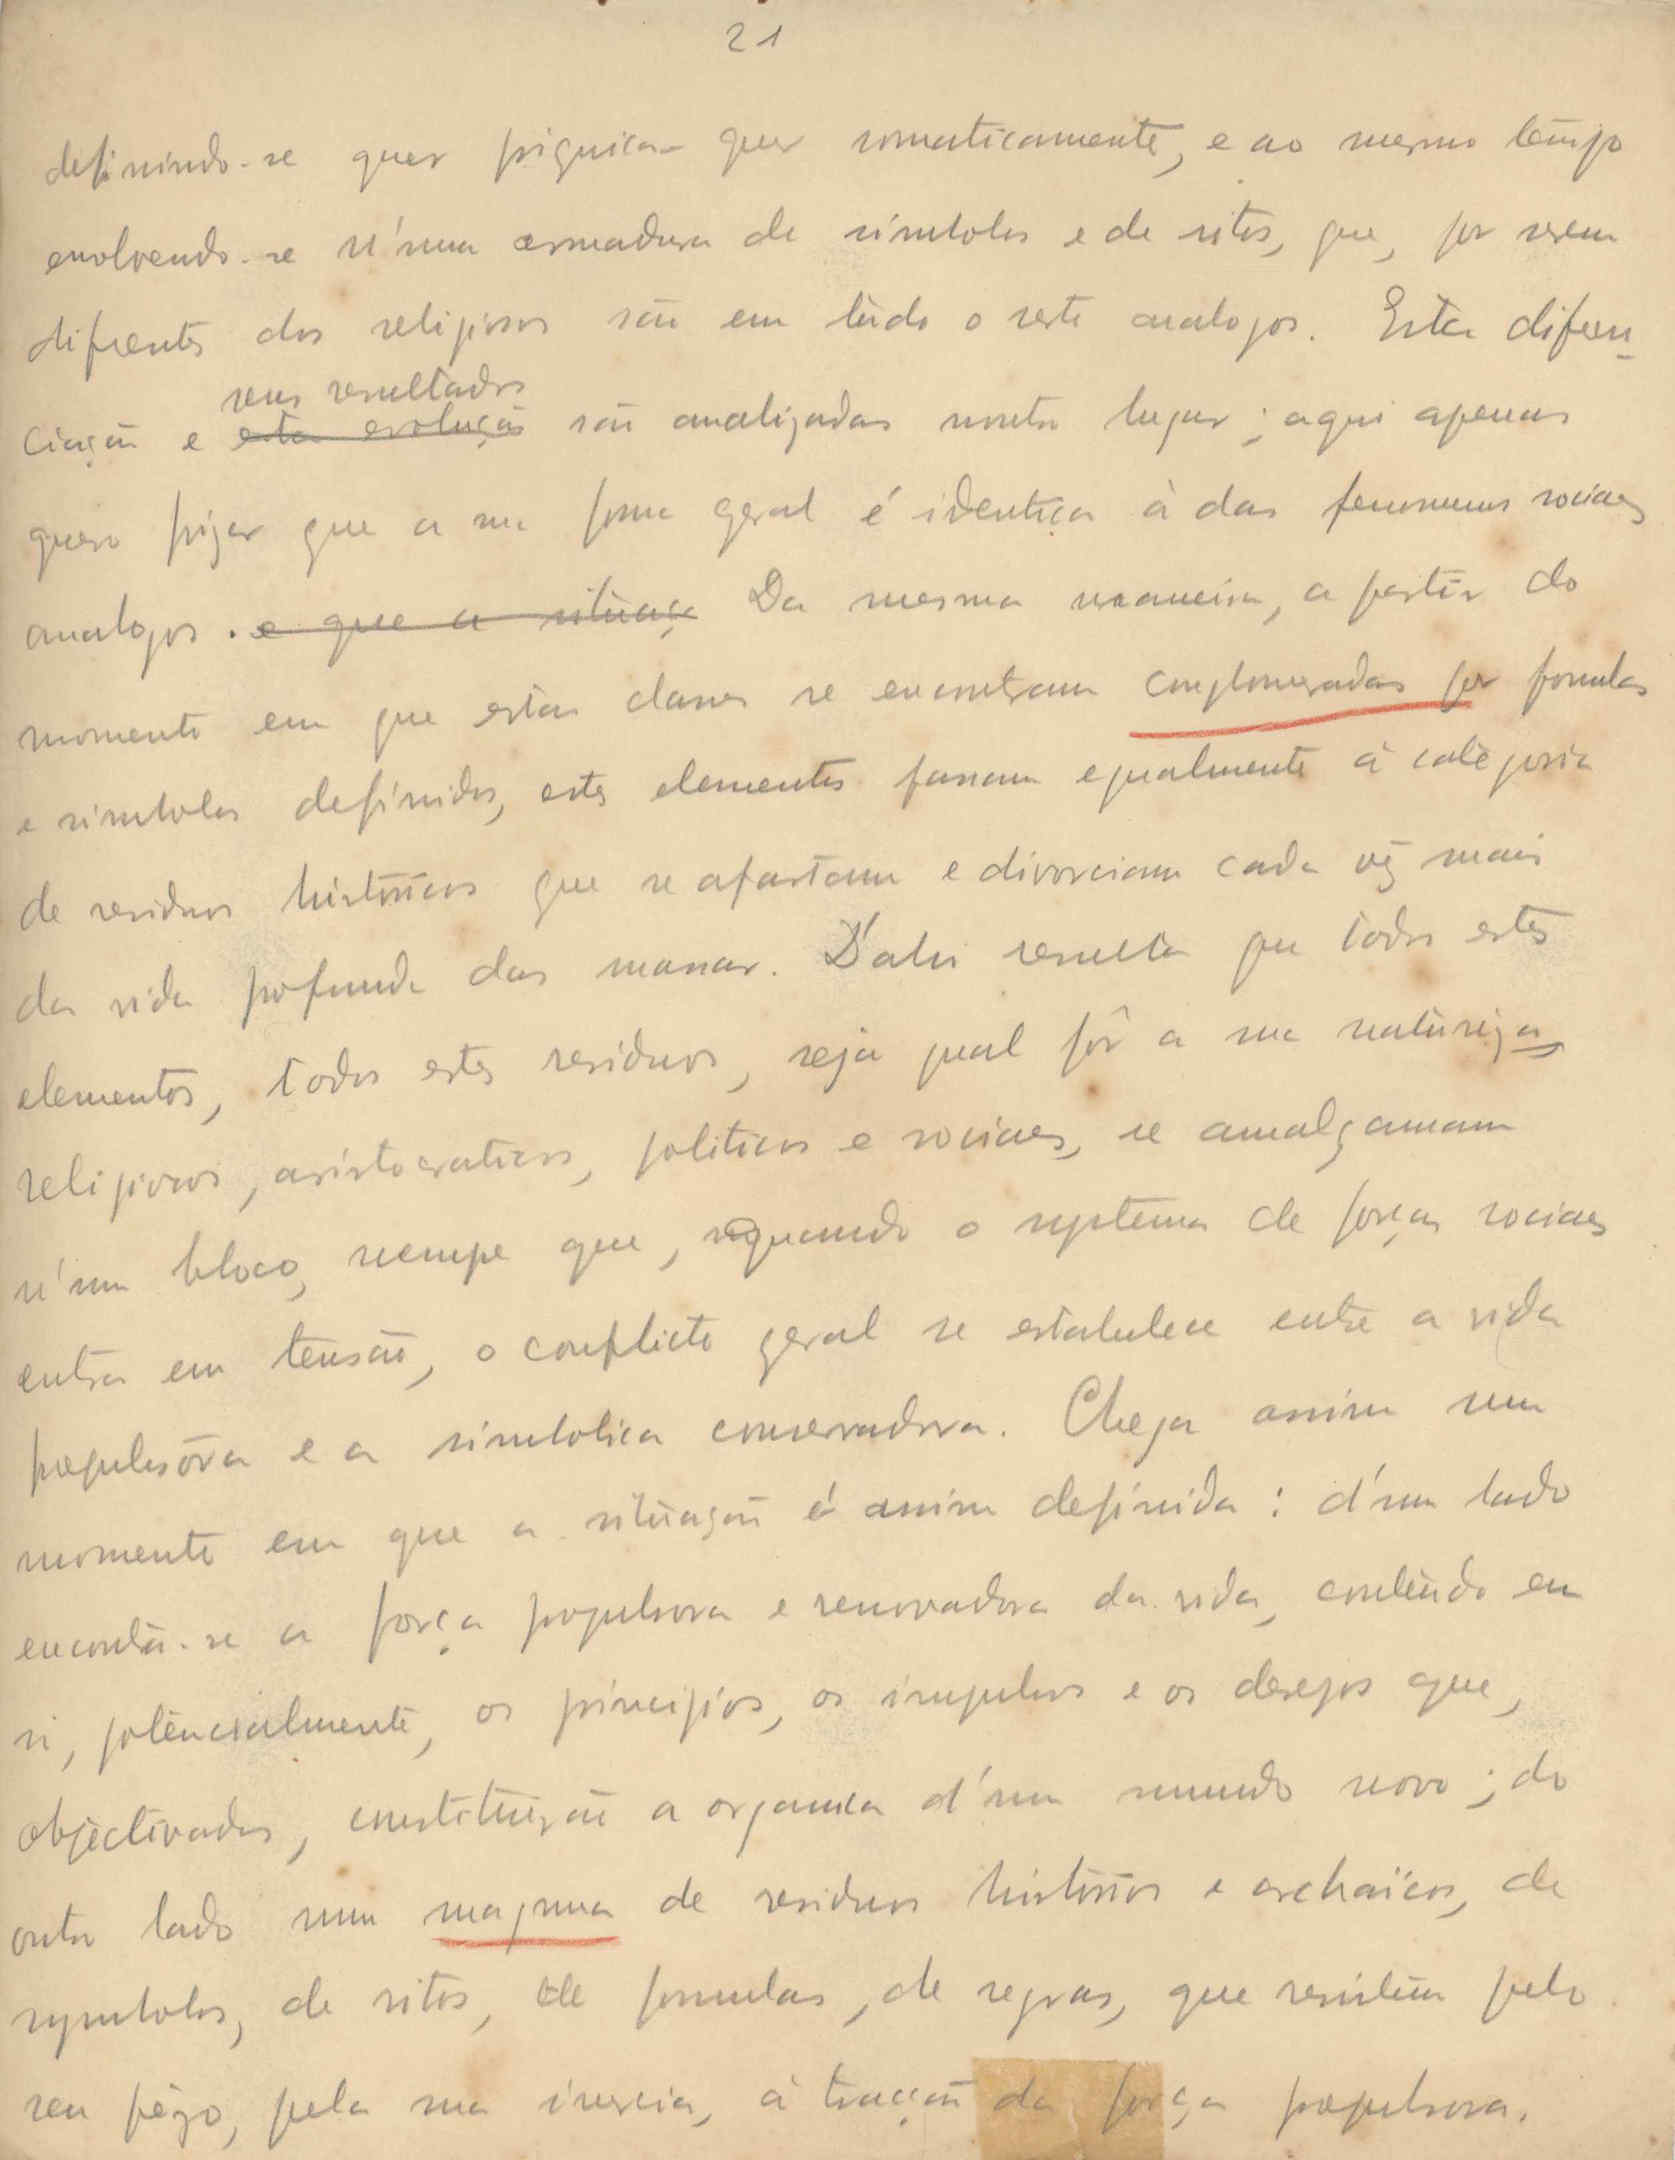 21
definindo-se quer psiquica- quer somaticamente, e ao mesmo tempo
envolvendo-se n'uma armadura de simbolos e de ritos, que, por serem
difrentes dos religiosos são em tudo o resto analogos. Esta difren-
seus resultados
ciação e esta evolução são analizadas noutro lugar; aqui apenas
quero frizar que a sua forma geral é identica à das fenomenos sociaes
analogos. e que a situaçã Da mesma maneira, a partir do
momento em que estas classes se encontram conglomeradas por formulas
e simbolos definidos, estes elementos passam egualmente á categoria
de residuos historicos que se afastam e divorciam cada vez mais
da vida profunda das massas. D'ahi resulta que todos estes
elementos, todos estes residuos, seja qual fôr a sua natureza,
religiosos, aristocraticos, politicos e sociaes, se amalgamam
n'um bloco, sempre que, quando o systema de forças sociaes
entra em tensão, o conflicto geral se estabelece entre a vida
propulsora e a simbolica conservadora. Chega assim um
momento em que a situação é assim definida: d'um lado
encontra-se a força propulsora e renovadora da vida, contendo em
si, potencialmente, os principios, os impulsos e os desejos que,
objectivados, constituirão a organica d'um mundo novo; do
outro lado um magma de residuos historicos e archaicos, de
symbolos, de ritos, de formulas, de regras, que resistem pelo
seu pêzo, pela sua inercia, á tracção da força propulsora.